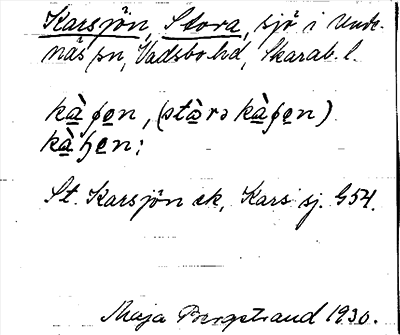 Karsjön, Stora, sjö i Unde-
näs sn, Vadsbo hd, Skarab. l.
kà̱ʂen, (stà̱rə kà̱ʂen)
kà̱ꞕen;
St. Karsjön ek, Kars sj. G54.
Maja Bergstrand 1930.